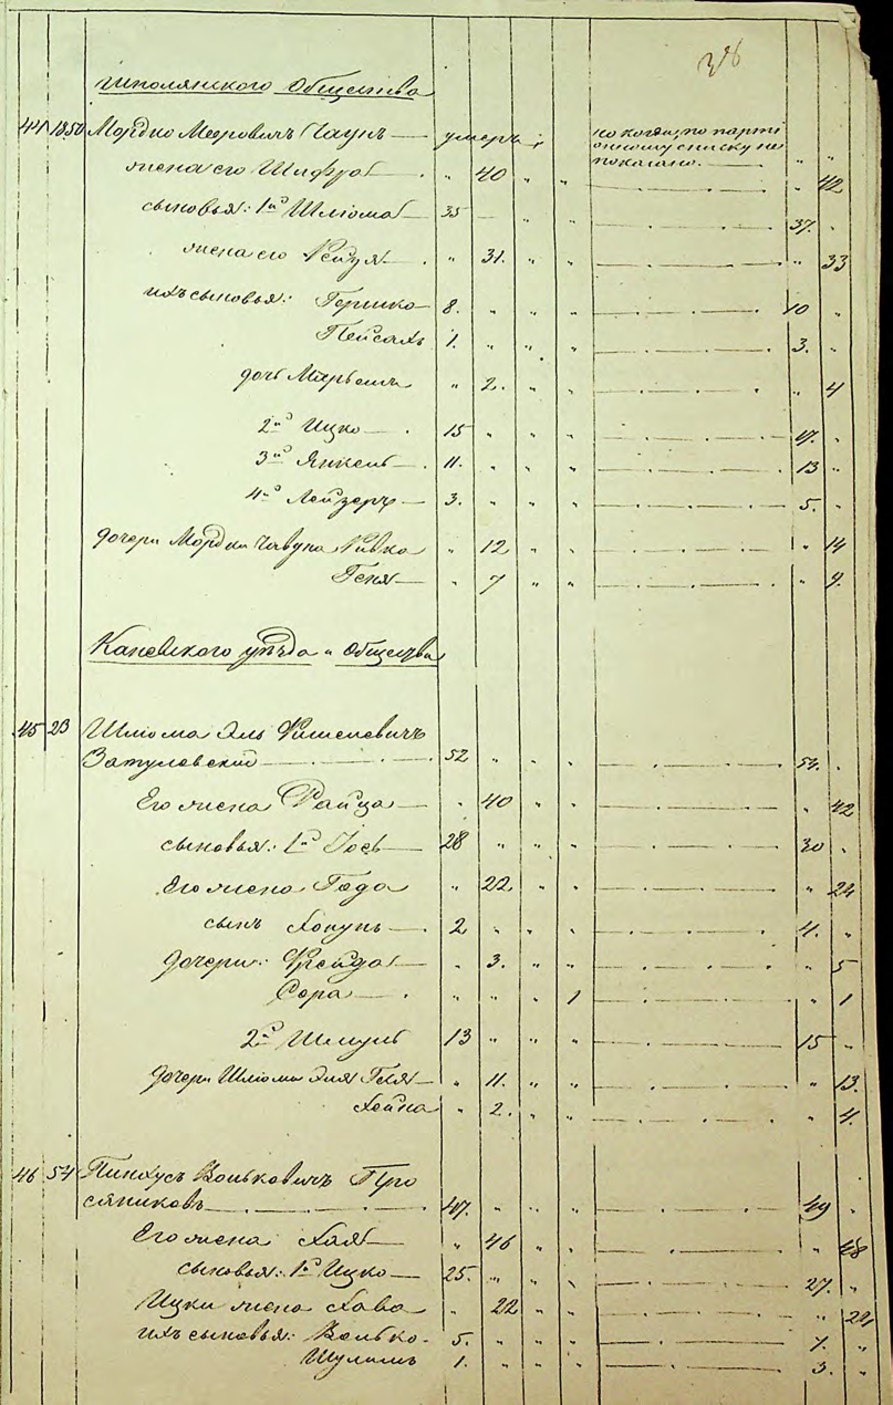 Шполянского Общества
44 1850 Мордко Меровичъ Чаунъ — умеръ; но когда, по парті
онному списку не
показано. " "
жена его Шифра " 40 " " " 42
сыновья: 1й Шліома 35 — " " 37. "
жена его Рейзя " 31. " " " 33
ихъ сыновья: Гершко 8. " " " 10 "
Пейсахъ 1. " " " 3. "
дочь " 2. " " " 4
2й Ицко 15 " " " 17. "
3й Янкель 11. " " " 13 "
4й Лейзеръ 3. " " " 5. "
дочери Мордки Чавуна Ривка " 12 " " " 14
Геня " 7 " " " 9.
Каневского уѣзда и Общества
45 23 Шліома Эль Фишелевичъ
Затулавскій 52 " " " 54. "
Его жена Райца " 40 " " " 42
сыновья: 1й Іось 28 " " " 30 "
Его жена Года " 22 " " " 24
сынъ 2 " " " 4. "
дочери: Фрейда " 3. " " " 5
Сора " " " 1 " 1
2й Шмуль 13 " " " 15 "
дочери Шліомы Эля Геня " 11. " " " 13.
Хейна " 2. " " " 4.
46 54 Пинхусъ Вольковичъ Про
сяниковъ 47. " " " 49 "
Его жена Хая " 46 " " " 48
сыновья: 1й Ицко 25. " " " 27. "
Ицки жена Хава " 22 " " " 24
ихъ сыновья: Волько 5. " " " 7. "
Шулимъ 1. " " " 3. "